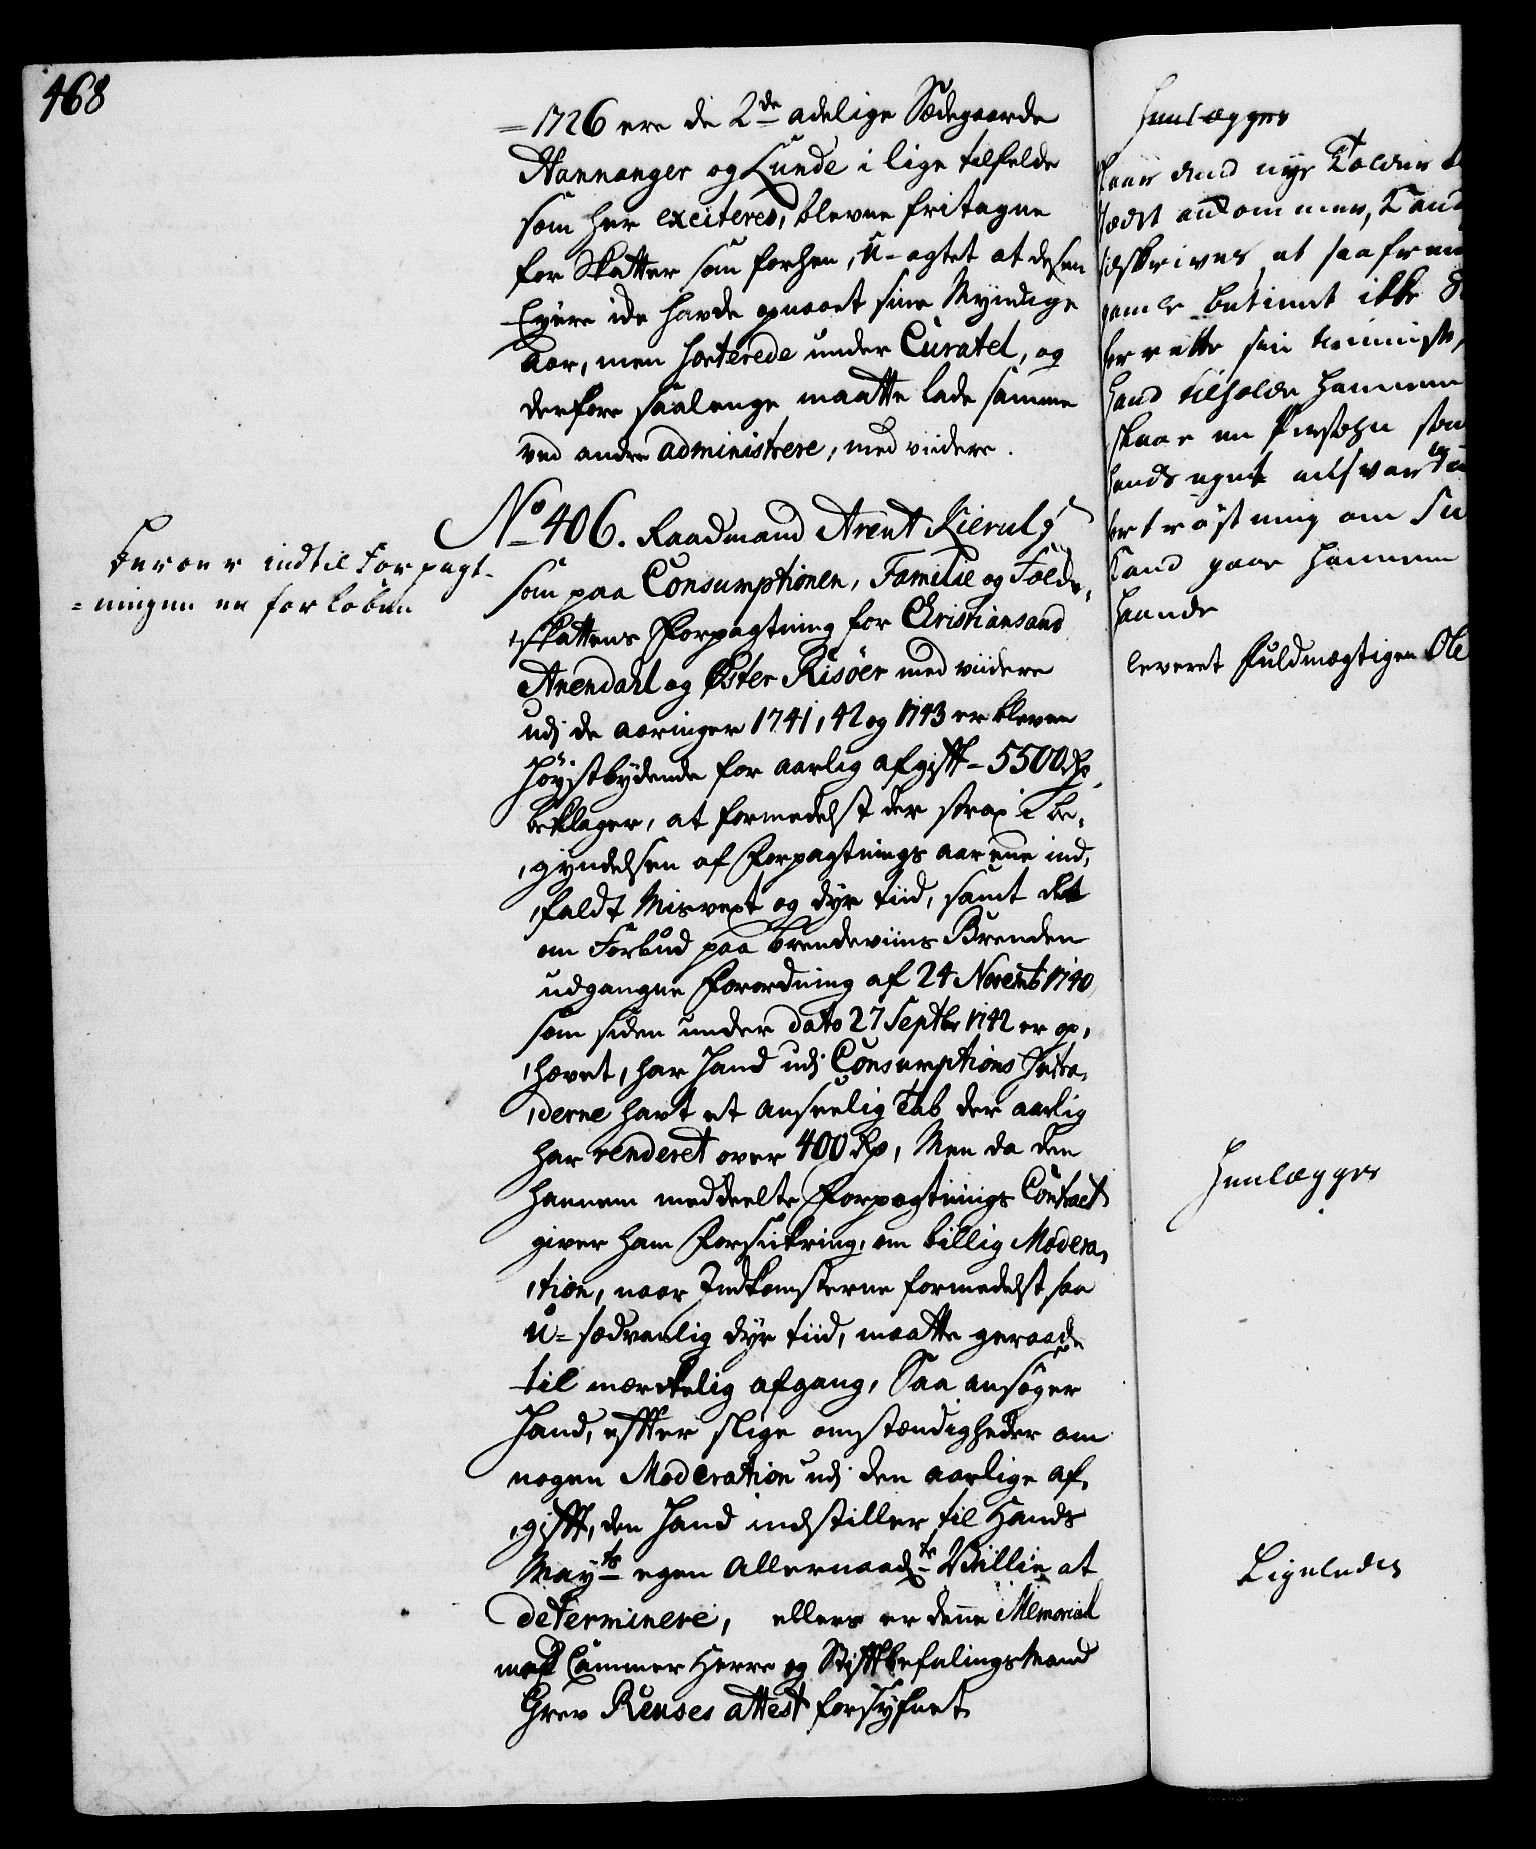 468
=1726 ere de 2de adelige Sædegaarde
Hannanger og Lunde i lige tilfelde
som her exciteres, blevne fritagne
for Skatter som forhen, u-agtet at desen
Eyere ide havde opnaaet sine Myndige
Aar, men sorterede under Curatel, og
derfore saalenge maatte lade samme
ved andre administrere, med viidere.
No 406. Raadmand Arent Kierulf
som paa Consumptionen, Familie og Folke-
skattens Forpagtning for Christiansand
Arendahl og Øster Risöer med viidere
udj de aaringer 1741, 42 og 1743 er bleven
Höystbydende for aarlig afgifft - 5500 Rd
beklager, at formedelst der strax i be-
gyndelsen af Forpagtnings aarene ind-
faldt Misvext og dyr tiid, samt det
om Forbud paa brendeviins Brenden
udgangne Forordning af 24 Novemb 1740
som siden under dato 27 Septbr 1742 er op-
hævet, har Hand udj Consumptions Intra-
derne havt et anseelig Tab der aarlig
har renderet over 400 Rd, Men da den
hannem meddeelte Forpagtnings Contract
giver ham Forsickring om billig Modera-
tion, naar Indkomsterne formedelst saa
u-sædvanlig dyr tiid, maatte geraade
til mærckelig afgang, Saa ansöger
Hand, effter slige omstændigheder om
nogen Moderation udj den aarlige af-
gifft, den Hand indstiller til Hands
Mayts egen Allernaadte Villie at
determinere, ellers er denne Memorial
med Cammer Herre og Stifftbefalings Mand
Grev Reuses attest forsyhnet
Beroer indtil Forpagt-
=ningen er forloben
Henlægges
den nye Tolder
andommer,
tilskrives at saafrem
gamle betient ikke
sin tieniste,
Hand tilholde hannem
skaae en Persohn som
hands egnet ansvar
om
Tand gaae hannem
haande
leveret Fuldmægtigen Ole
Henlægges
Ligeledes